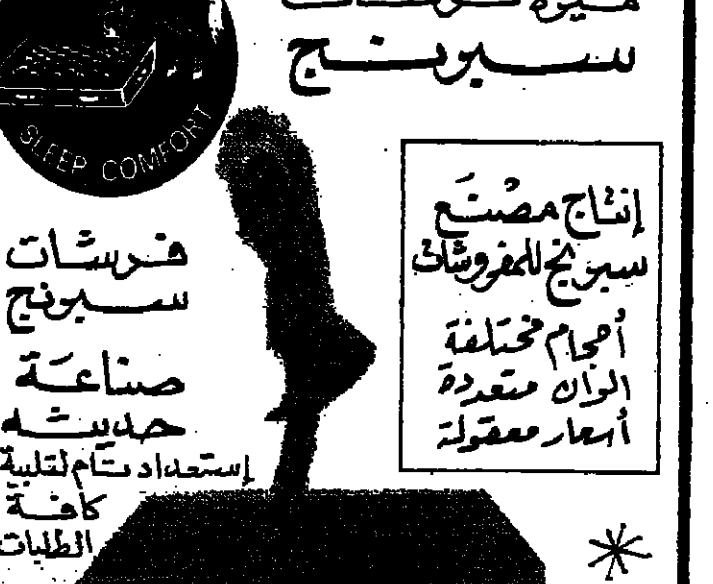 سبونج
SLEEP COMFORT
إنتاج مصنع
سبونج للمفروشات
أحجام مختلفة
الوان متعددة
أسعار معقولة
فرشات
سبونج
صناعة
حديثه
إستعداد تام لتلبية
كافة
الطلبات